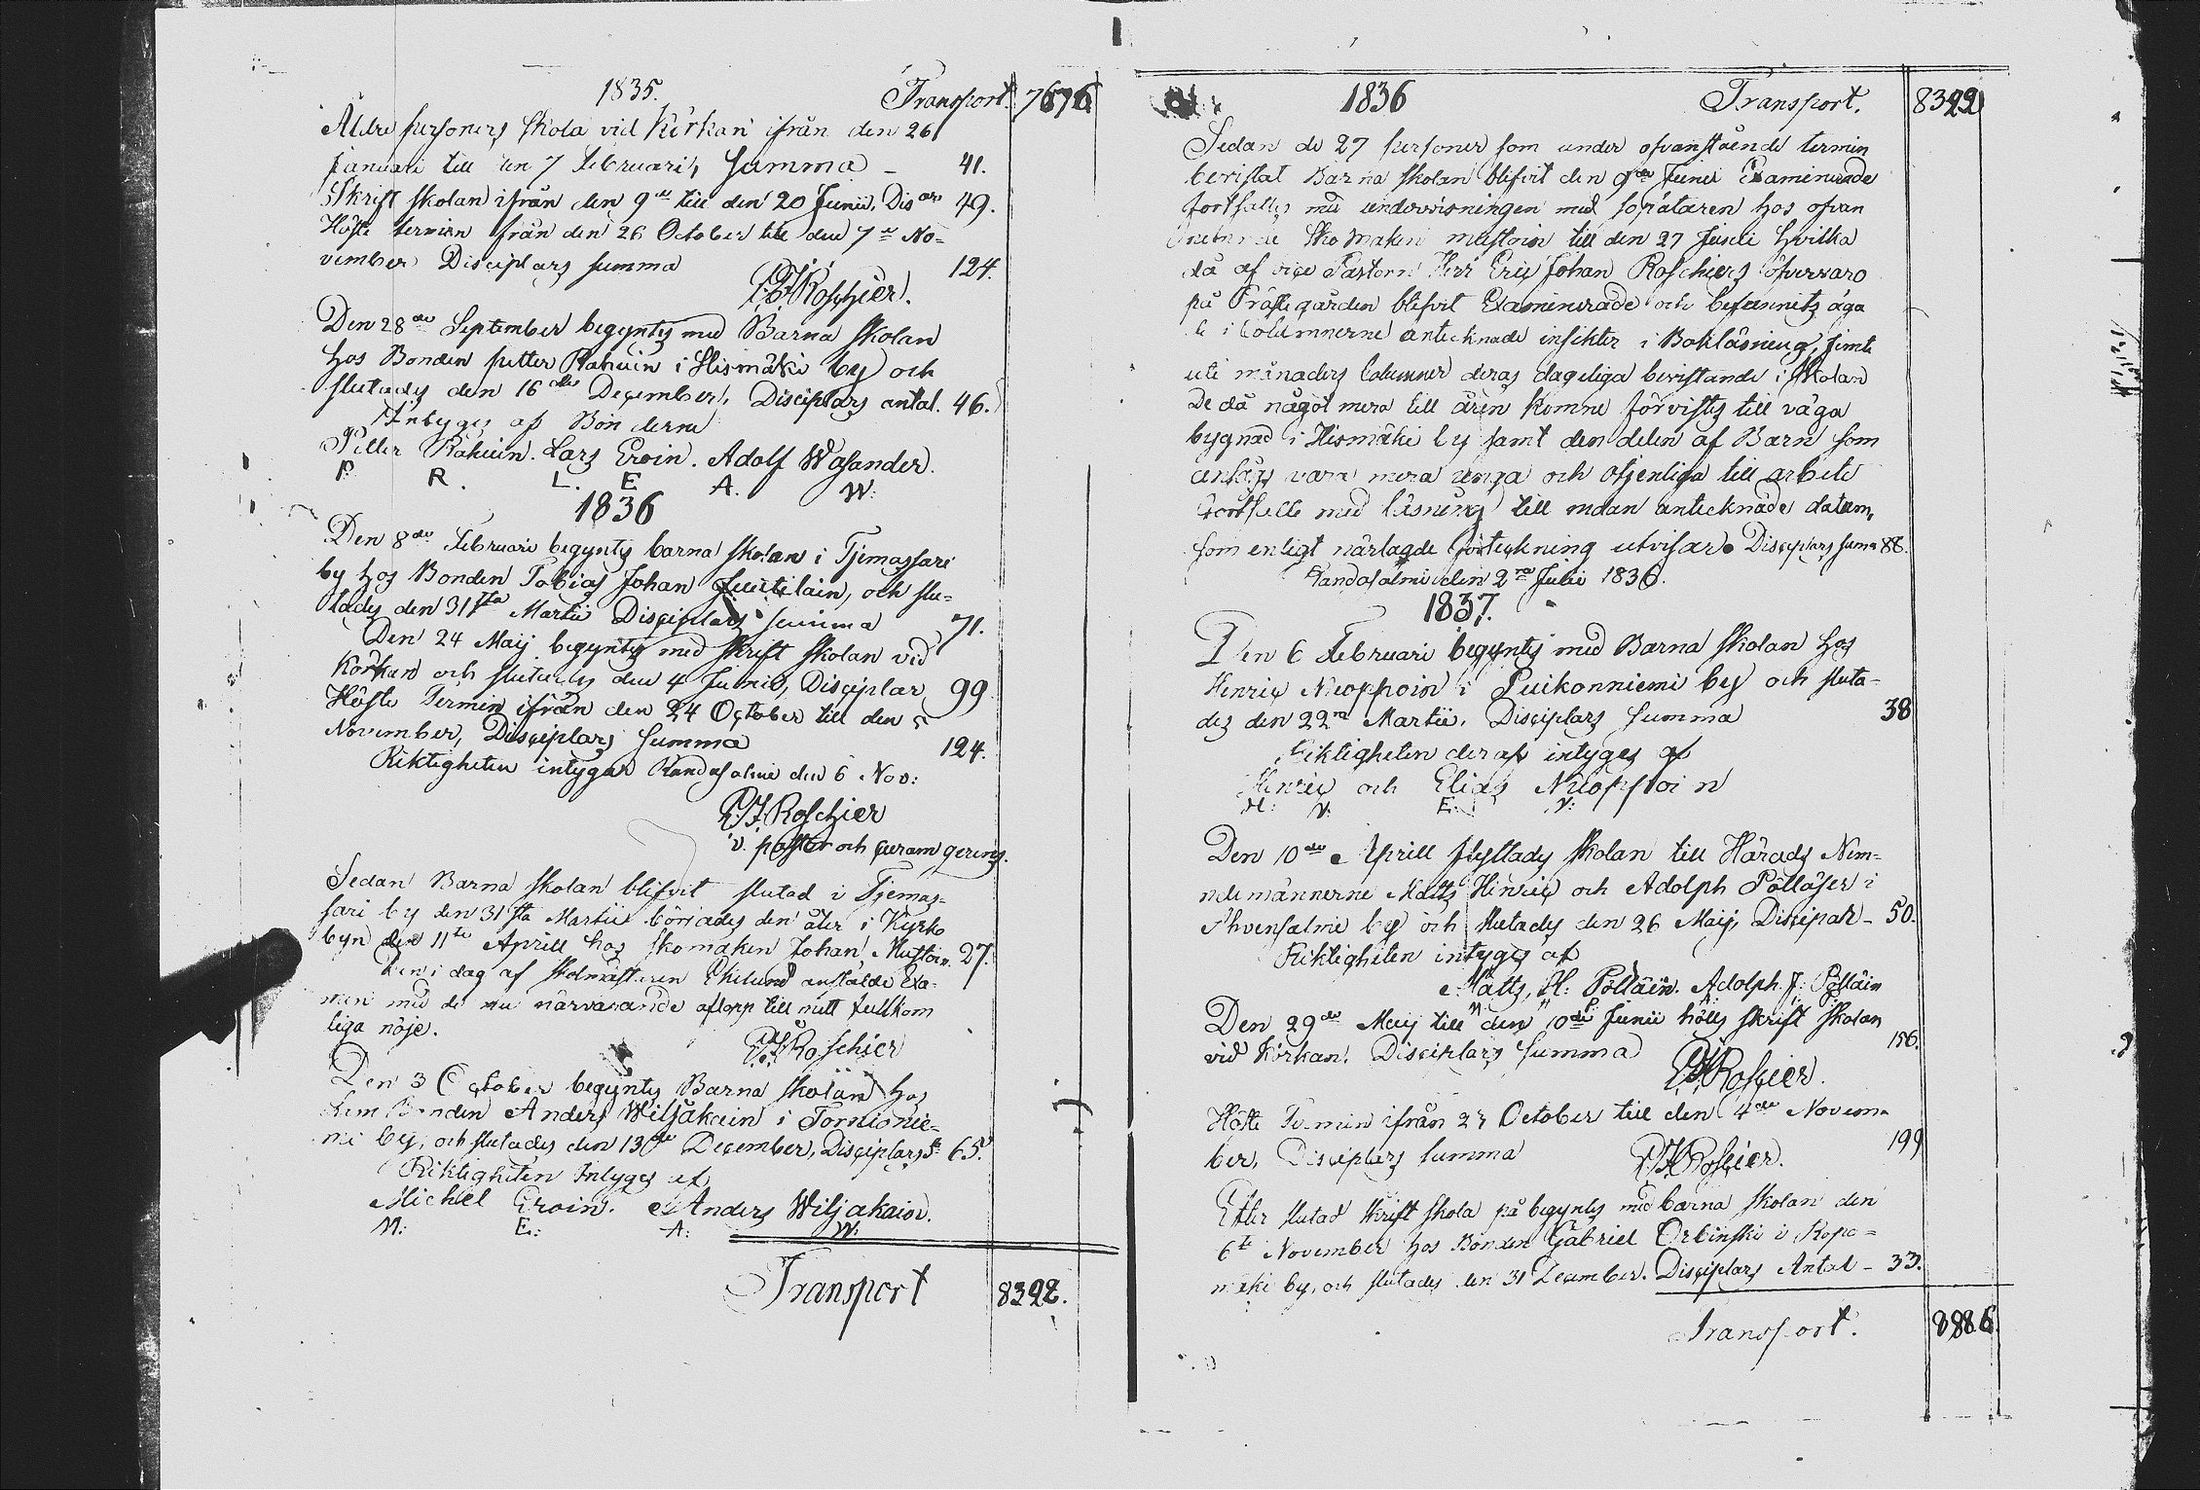 1835. Transport. 7676
Äldre personers skola vid Körkan ifrån den 26
januari till den 7 Februari, Summa - 41.
Skrift skolan ifrån den 9de till den 20 Junii, Dis 49.
Höste termien från den 26 October till den 7 No-
vember Disciplars summa 124.
E.J. Roschier.
Den 28de September begyntes med Barna skolan
hos Bonden petter Rähuin i Hismäki by och
slutades den 16de December, Disciplars antal. 46.
Intyges af Bönderne
Petter Rähuin. Lars Eroin. Adolf Wasander.
P. R. L. E A. W:
1836
Den 8de Februari begyntes barna skolan i Tjemassari
by hos Bonden Tobias Johan Juutilain, och slu-
tades den 31sta Martii Disciplars summa 71.
Den 24 Maij begyntes med Skrift skolan vid
Körkan och slutades den 4 Junii, Disciplar 99
Höste Termin ifrån den 24 October till den 5
November, Disciplars summa 124.
Riktigheten intygar Randasalmi den 6 Nov:
E.J. Roschier
v. pastor och
Sedan Barna skolan blifvit slutad i Tjemas-
sari by den 31sta Martii börjades den åter i Kyrko
byn den 11te Aprill hos skomaken Johan Mustoin. 27.
Den i dag af skolmästaren Ekelund anstälde Exa-
men med de nu närvarande aflopp till mitt fullkom
liga nöje.
E.J. Roschier
Den 3 October begyntes Barna skolan hos
Bonden Anders Wiljakain i Tornionie-
mi by, och slutades den 13de December, Disciplars 65.
Riktigheten Intyges af
Michel Eroin. Anders Wiljakain.
M: E: A: W:
Transport 8322.
1836 Transport. 8322
Sedan de 27 personer som under ofvanstående termin
bevistat Barna skolan blifvit den 9de Junii Examinerade
fortsattes med undervisningen med hos ofvan
Skomaken Mustoin till den 27 Junii hvilka
då af vice Pastorn Herr Eric Johan Roschiers öfvervaro
på Prästegården blifvit Examinerade och befunnits äga
de i Columnerne antecknade insikter i Bokläsning, jemte
uti månaders Columner deras dageliga bevistande i skolan
De då något mera till åren komne förvistes till väga
bygnad i Hismäki by samt den delen af Barn som
ansågs vara mera unga och otjenliga till arbete
fortsatte med läsning till endan antecknade datum,
som enligt närlagde förteckning utvisar. Disciplars suma 88.
Randasalmi den 2ra Julii 1836.
1837.
Den 6 Februari begyntes med Barna skolan hos
Henric Nuoppoin i Puikonniemi by och sluta-
des den 22ra Martii. Disciplars summa 38
Riktigheten deraf intyges af
Henric och Elias Nuoppoin
H: N: E: N:
Den 10de Aprill flyttades skolan till Härads Nem-
ndemännerne Matts Henric och Adolph Pölläser i
Ahvensalmi by och slutades den 26 Maij, Discipar - 50.
Riktigheten intyges af
Matts, H: Pölläin. Adolph. J: Pölläin
Den 29de Maij till den 10de Junii hölts skrift skolan
vid Körkan. Disciplars summa 156.
E.J. Roschier.
Höste Termin ifrån 23 October till den 4de Novem-
ber, Disciplars summa 199
E.J. Roschier.
Efter slutad skrift skola på begyntes med barna skolan den
6te November hos Bonden Gabriel Orbinski i Rope-
mäki by, och slutades den 31 December. Disciplars Antal - 33.
Transport. 8886.